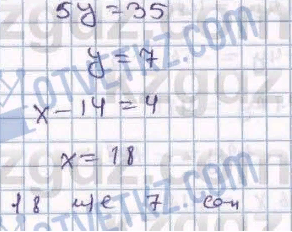 5y = 35
y = 7
x - 14 = 4
x = 18
18 және 7 сан